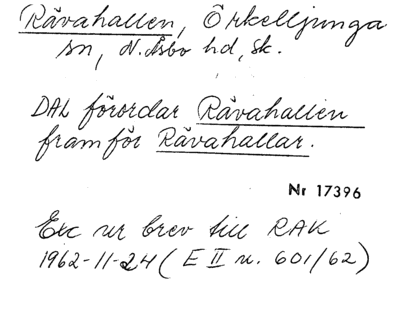 Råvahallen, Örkelljunga
sn, N. Åsbo hd, Sk.
DAL förordar Råvahallen
framför Råvahallar.
Nr 17396
Exc ur brev till RAK
1962-11-24 (E II u. 601/62)